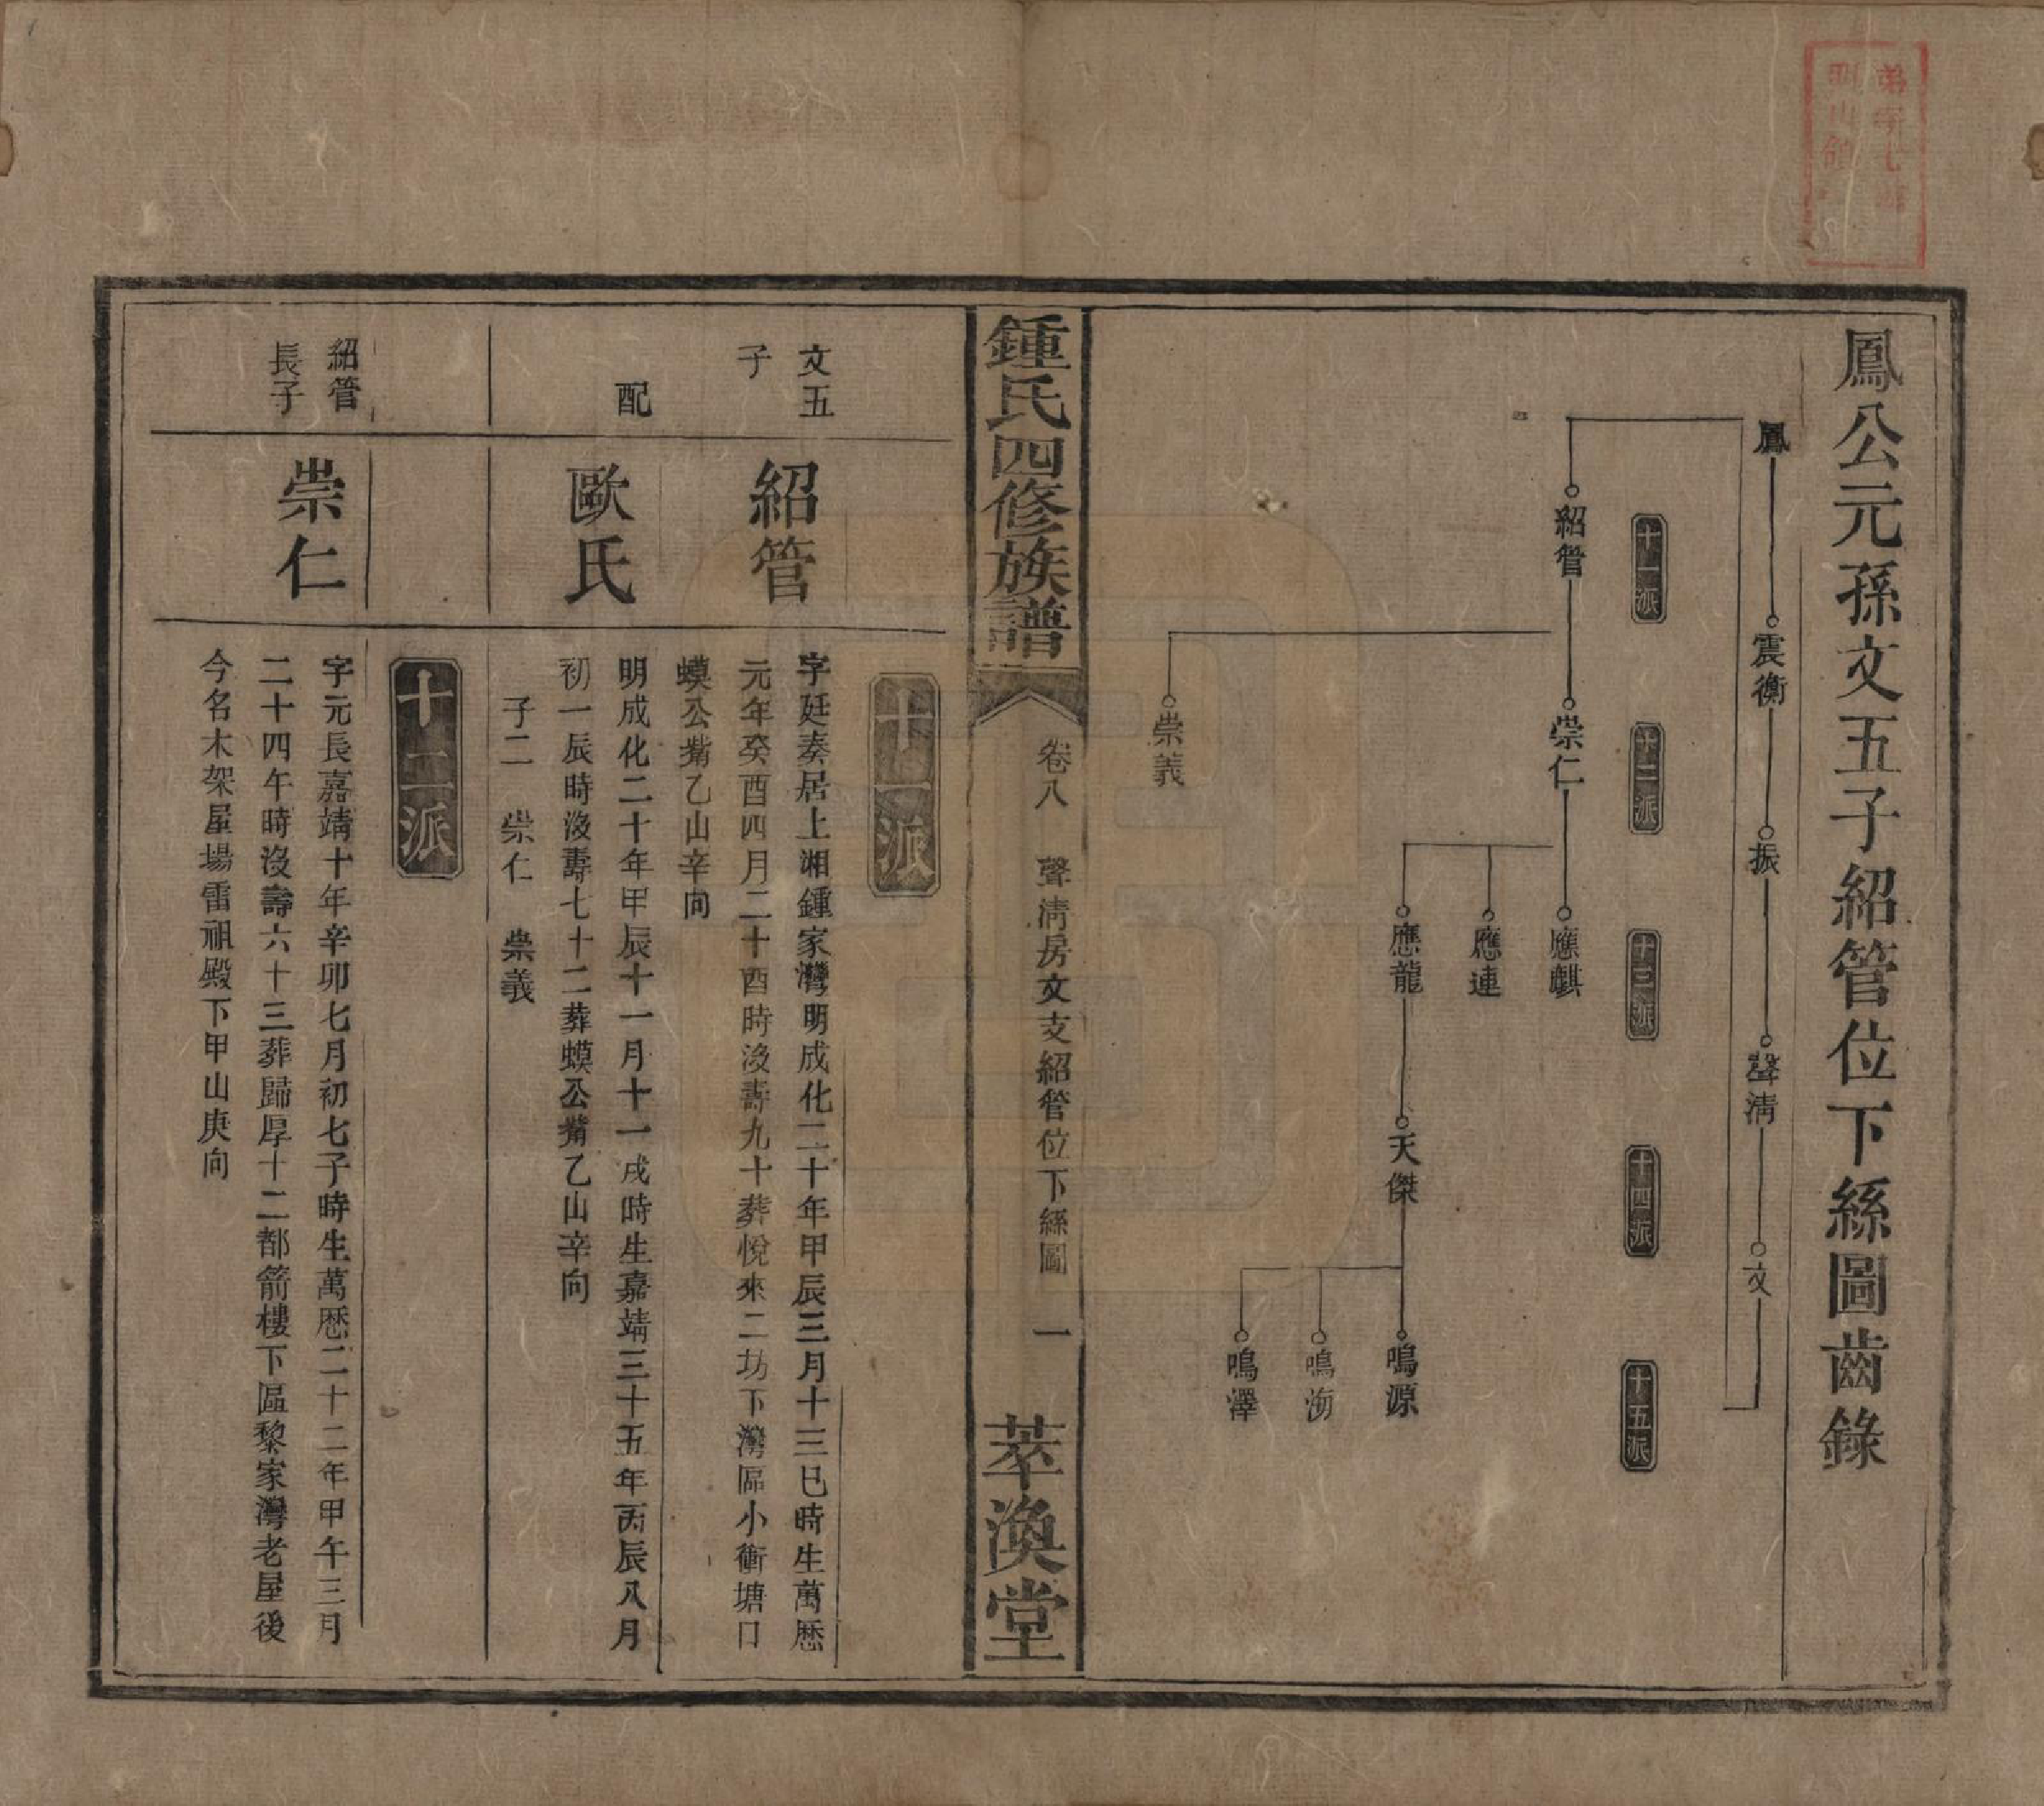 鳳公元孫文五子紹管位下絲圖齒錄
鳳 震衡 振 聲淸 文
十一派 十二派 十三派 十四派 十五派
紹管 崇仁 應麒
應連
應龍 天傑 鳴源
鳴澤
崇義
鍾氏四修族譜 卷八 聲淸房文支紹管位下絲圖 一 萃渙堂
十一派
文五子 紹管 字廷奏居上湘鍾家灣明成化二十年甲辰三月十三巳時生萬歷
元年癸酉四月二十酉時沒壽九十葬悅來二坊下灣區小衝塘口
蟆公觜乙山辛向
配 歐氏 明成化二十年甲辰十一月十一戌時生嘉靖三十五年丙辰八月
初一辰時沒壽七十二葬蟆公觜乙山辛向
子二 崇仁 崇義
十二派
紹管長子 崇仁 字元長嘉靖十年辛卯七月初七子時生萬歷二十二年甲午三月
二十四午時沒壽六十三葬歸厚十二都箭樓下區黎家灣老屋後
今名木架屋場雷祖殿下甲山庚向